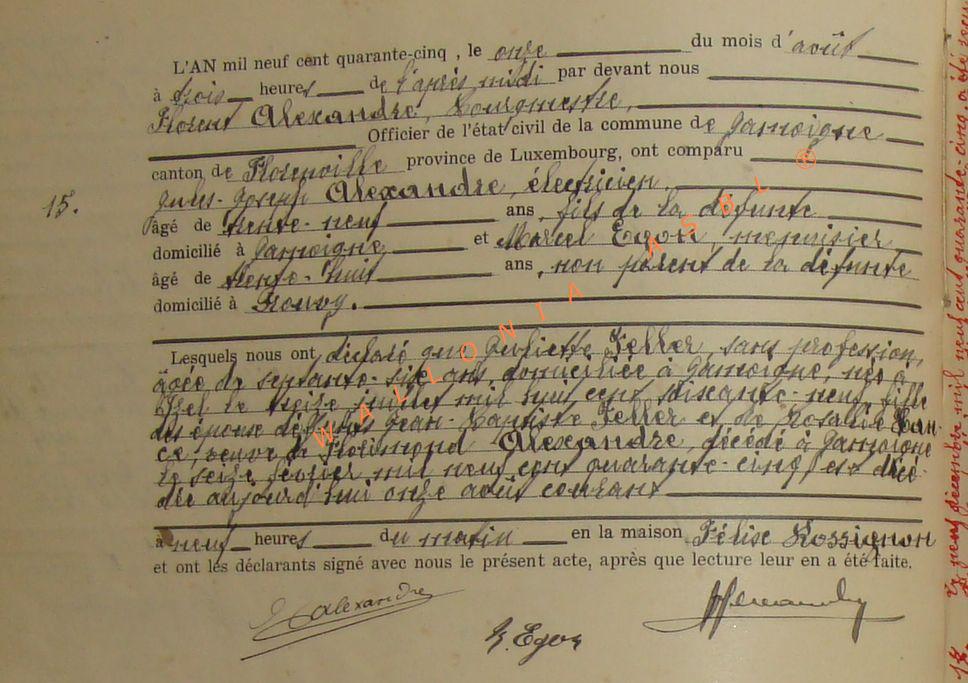 L'AN mil neuf cent quarante-cinq, le onze du mois d'août
à trois heures de l'après midi par devant nous
Florent Alexandre, Bourgmestre,
Officier de l'état civil de la commune de Jamoigne
canton de Florenville province de Luxembourg, ont comparu
Jules-Joseph Alexandre, électricien,
15.
âgé de trente-neuf ans, fils de la défunte
domicilié à Jamoigne et Marcel Egon, menuisier
âgé de trente-huit ans, non parent de la défunte
domicilié à Prouvy.
Lesquels nous ont déclaré que Juliette Feller, sans profession,
âgée de septante-six ans domiciliée à Jamoigne, née à
Izel le treize juillet mil huit cent soixante-neuf, fille
des époux défunts Jean-Baptiste Feller et de Rosalie
veuve de Florimond Alexandre, décédé à Jamoigne
le seize février mil neuf cent quarante-cinq, est décé-
dée aujourd'hui onze août courant
à neuf heures du matin en la maison Félise Rossignon
et ont les déclarants signé avec nous le présent acte, après que lecture leur en a été faite.
Alexandre
Egon
WALLONIA ASBL ®
neuf décembre mil neuf cent quarante-cinq a été